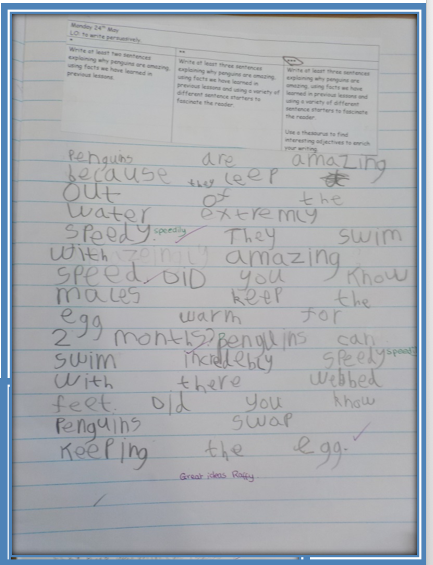 Monday 24th May
LO: to write persuasively.
*
Write at least two sentences
explaying why penguins are amazing,
using facts we have learned in
previous lessons.
**
Write at least three sentences
explaining why penguins are amazing,
using facts we have learned in
previous lessons and using a variety of
different sentence starters to
fascinate the reader.
***
Write at least three sentences
explaining why penguins are
amazing, using facts we have
learned in previous lessons and
using a variety of different
sentence starters to fascinate
the reader.
Use a thesaurus to find
interesting adjectives to enrich
your writing.
Penguins are amazing
because they leep
out of the
water extremly
speedy. speedily They swim
with amazing
speed. DID you Know
males keep the
egg warm for
2 months? penguins can
swim incredebly speedy speedily
with there webbed
feet. Did you know
Penguins swap
Keeping the egg.
Great ideas Raffy